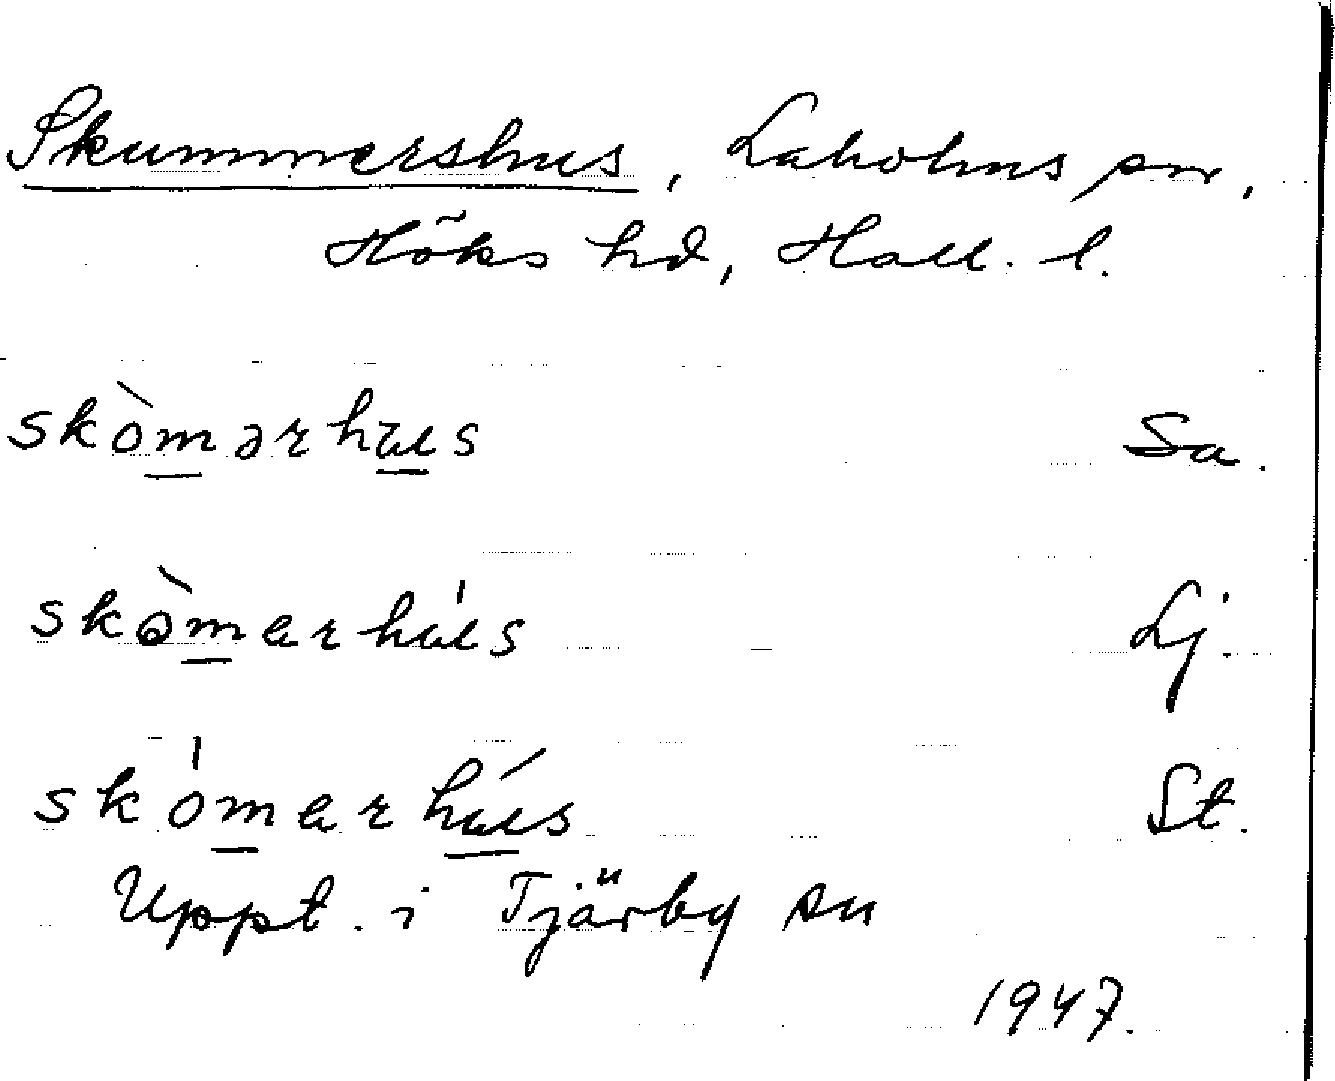 Skummershus, Laholms sn,
Höks hd, Hall. l.
skòmərhus Sa.
skòmerhús Lj.
skómerhús St.
Uppt. i Tjärby sn
1947.